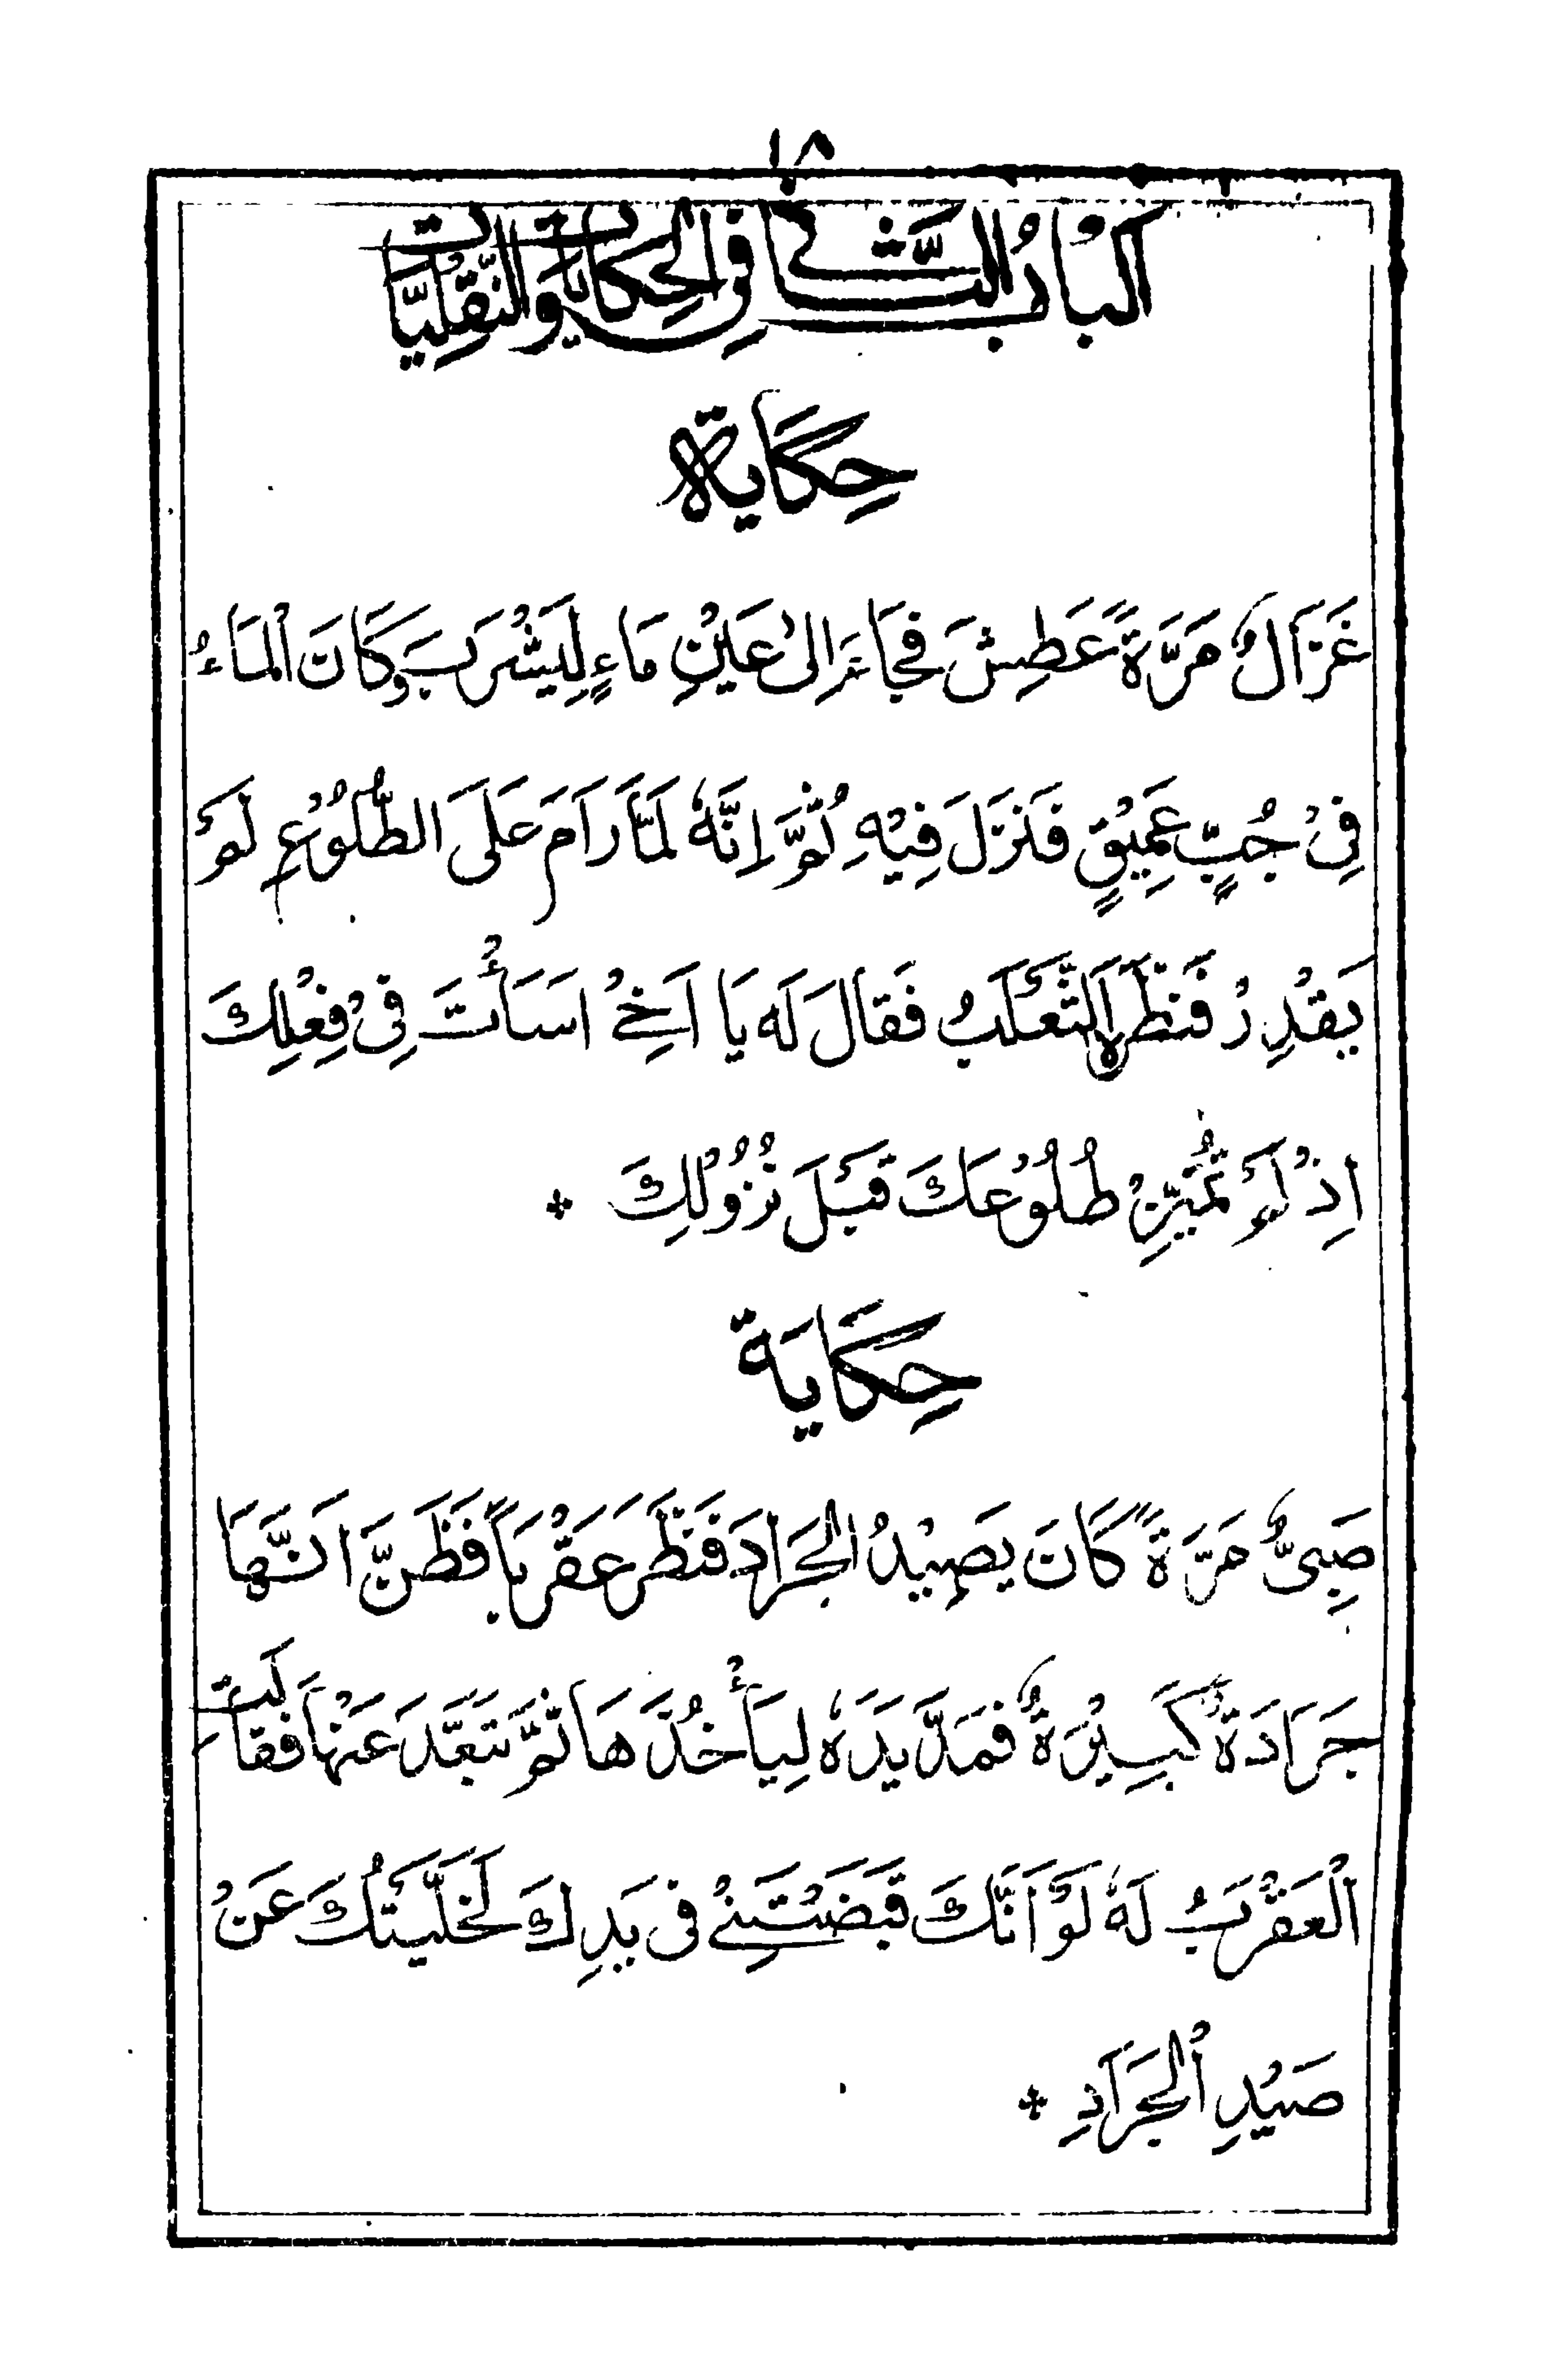 ١٨
اَلْبَابُ الثَّانِي فِي الْحِكَايَاتِ وَالنَّقْلِيَّاتِ
حِكَايَة
غَزَالٌ مَرَّةً عَطِشَ فَجَاءَ اِلىٰ عَيْنِ مَاءٍ لِيَشْرَبَ وَكَانَ الْمَاءُ
فِيْ جُبٍّ عَمِيْقٍ فَنَزَلَ فِيْهِ ثُمَّ اِنَّهٗ لَمَّا رَامَ عَلَى الطُّلُوْعِ لَمْ
يَقْدِرْ فَنَظَرَهُ الثَّعْلَبُ فَقَالَ لَه يَا اَخِيْ اَسَأْتَ فِيْ فِعْلِكَ
اِذْ لَمْ تُمَيِّزْ طُلُوْعَكَ قَبْلَ نُزُوْلِكَ *
حِكَايَة
صَبِيٌّ مَرَّةً كَانَ يَصِيْدُ الْجَرَادَ فَنَظَرَ عَقْرَبًا فَظَنَّ اَنَّهَا
جَرَادَةٌ كَبِيْرَةٌ فَمَدَّ يَدَهٗ لِيَأْخُذَهَا ثُمَّ تَبَعَّدَ عَنْهَا فَقَالَتِ
الْعَقْرَبُ لَهٗ لَوْ اَنَّكَ قَبَضْتَنِيْ فِي يَدِكَ لَخَلَّيْتُكَ عَنْ
صَيْدِ الْجَرَادِ *